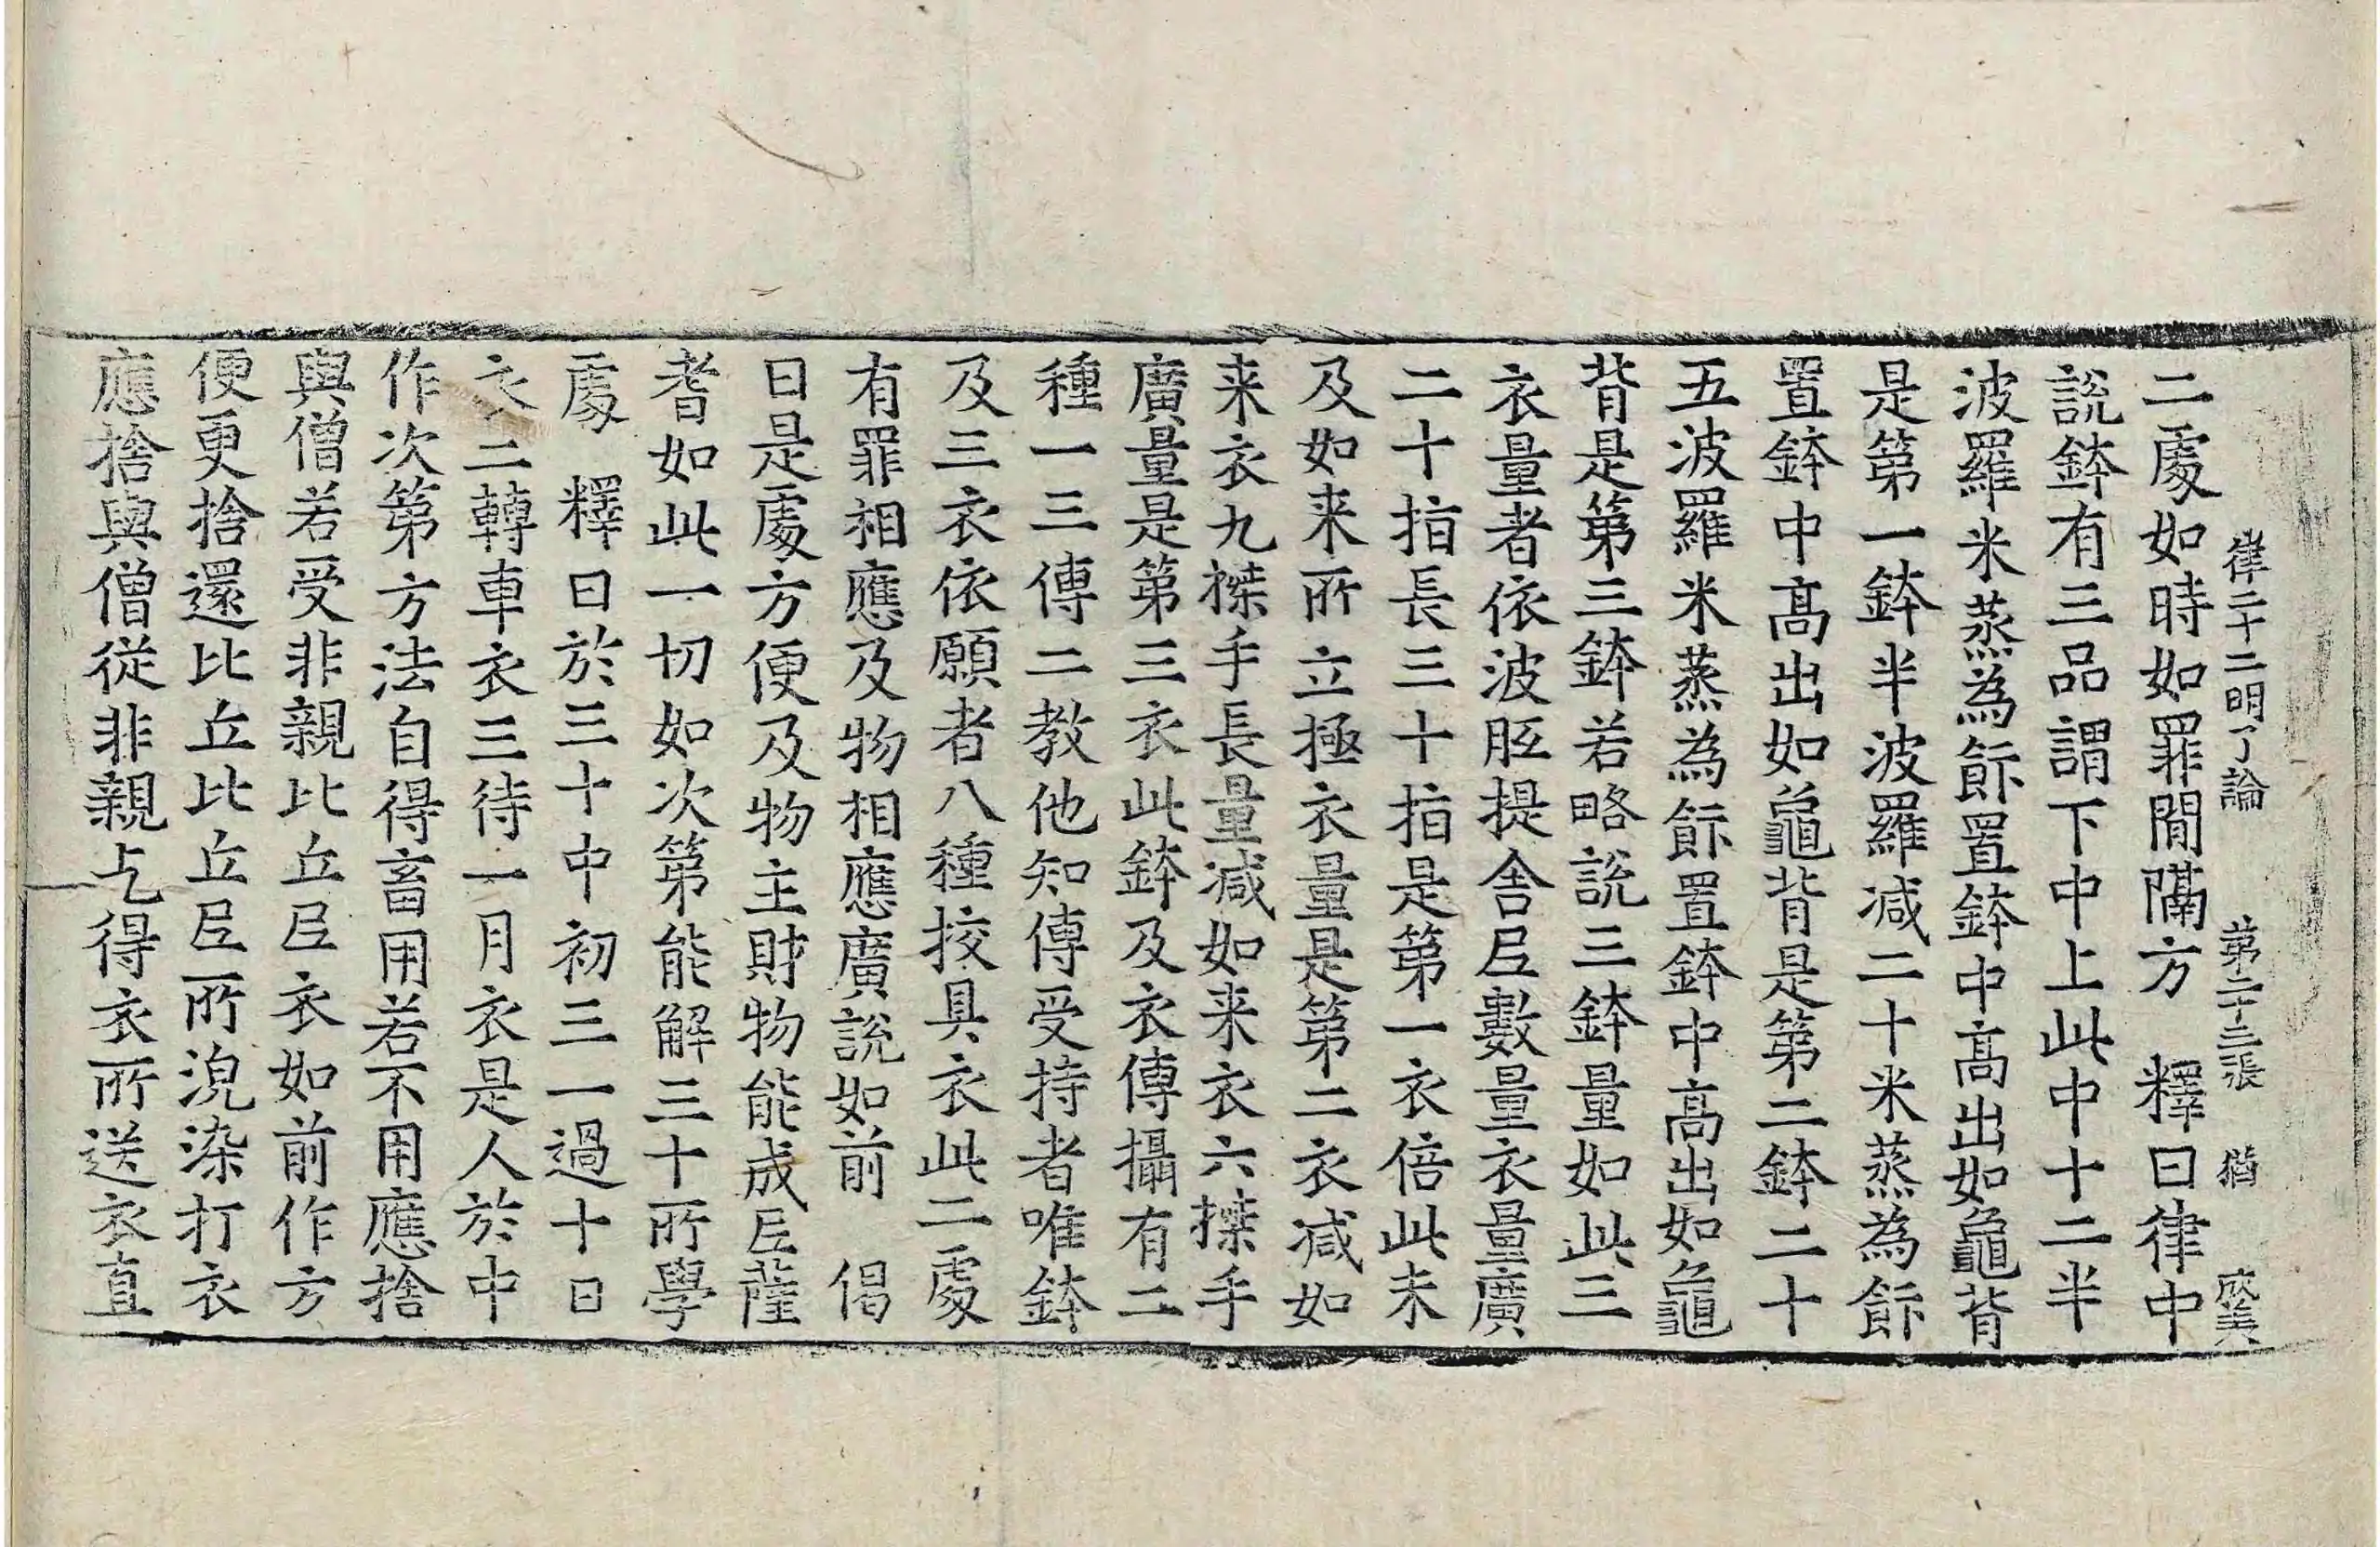 律二十二明了論 第二十三張 猶
二處如時如罪閒隔方 釋曰律中
說鉢有三品謂下中上此中十二半
波羅米蒸為飰置鉢中髙出如龜背
是第一鉢半波羅減二十米蒸為飰
置鉢中髙出如龜背是第二鉢二十
五波羅米蒸為飰置鉢中髙出如龜
背是第三鉢若略說三鉢量如此三
衣量者依波胝提舍𡰱數量衣量廣
二十指長三十指是第一衣倍此未
及如来所立極衣量是第二衣減如
来衣九搩手長量減如来衣六搩手
廣量是第三衣此鉢及衣傳攝有二
種一三傳二教他知傳受持者唯鉢
及三衣依願者八種挍具衣此二處
有罪相應及物相應廣說如前 偈
曰是處方便及物主財物能成𡰱薩
耆如此一切如次第能解三十所學
處 釋曰於三十中初三一過十日
衣二轉車衣三待一月衣是人於中
作次第方法自得畜用若不用應捨
與僧若受非親比丘𡰱衣如前作方
便更捨還比丘比丘𡰱所浣染打衣
應捨與僧從非親乞得衣所送衣直